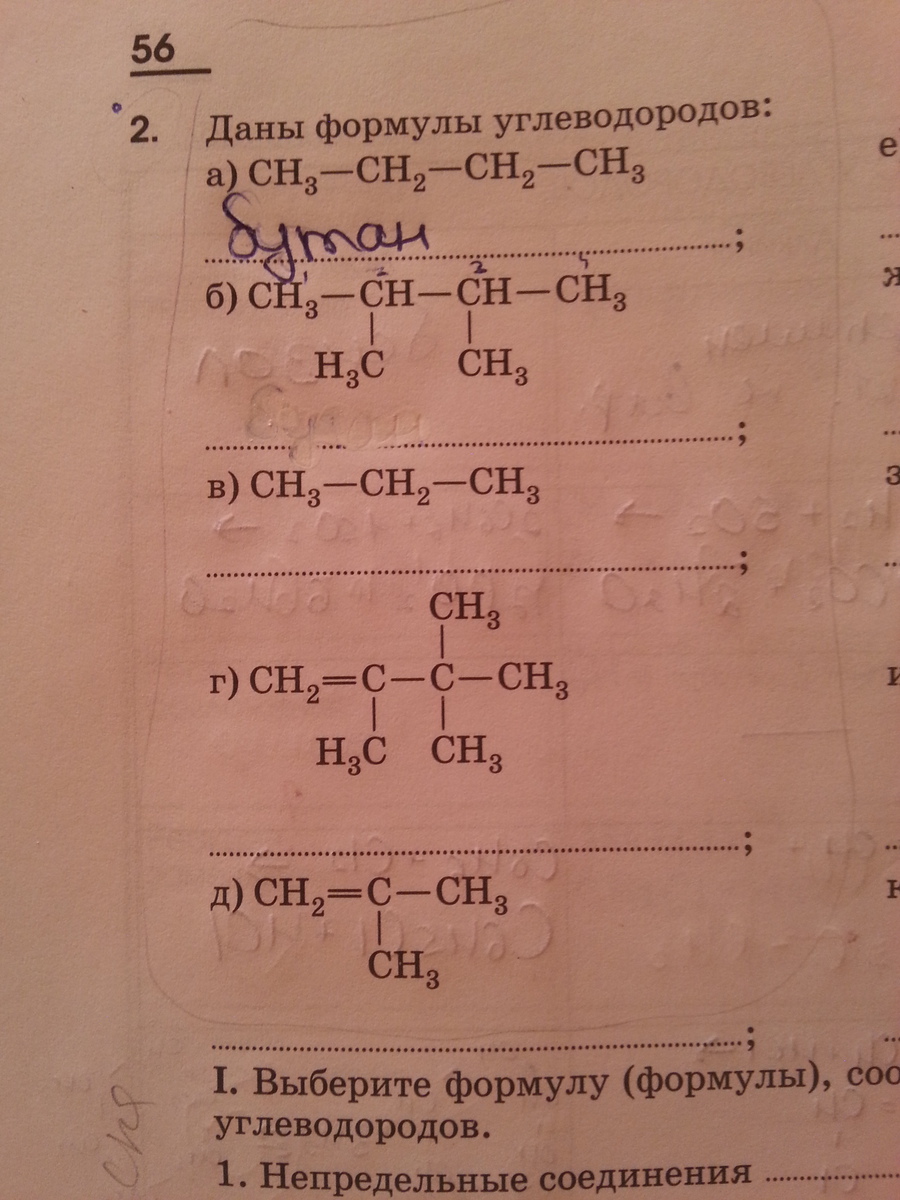 56
2. Даны формулы углеводородов:
а) CH₃—CH₂—CH₂—CH₃
е
бутан
;
1 2 3 4
ж
б) CH₃—CH—CH—CH₃
| |
H₃C CH₃
;
з
в) CH₃—CH₂—CH₃
;
CH₃
|
г) CH₂=C—C—CH₃
и
| |
H₃C CH₃
;
д) CH₂=C—CH₃
|
CH₃
;
I. Выберите формулу (формулы), соо
углеводородов.
1. Непредельные соединения